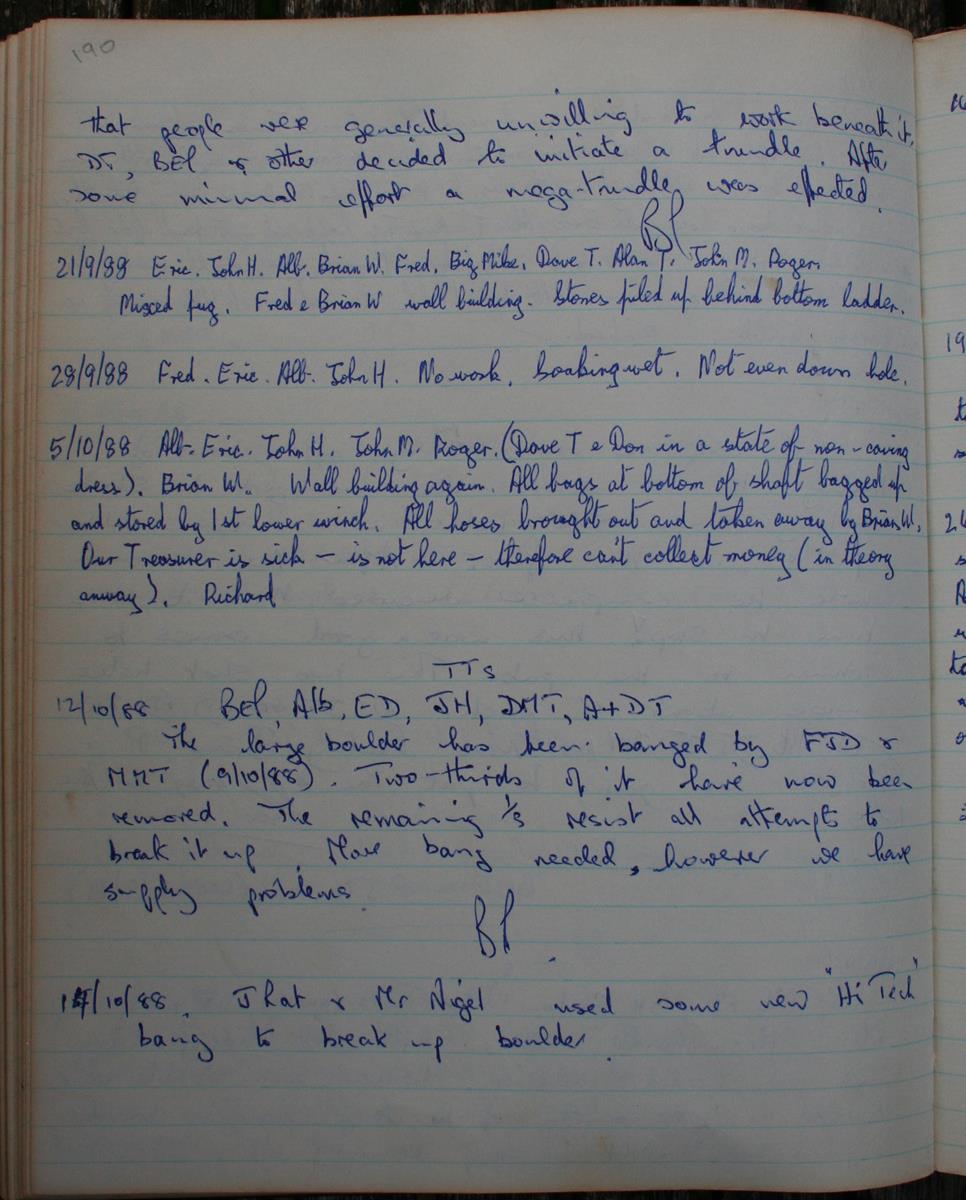 190
that people were generally unwilling to work beneath it,
DT, BEL & other decided to initiate a trundle. After
some minimal effort a mega-trundle was effected.
21/9/88 Eric. John H. Alb. Brian W. Fred. Big Mike. Dave T. Alan T. John M. Roger.
Misced fug. Fred e Brian W wall building. Stones piled up behind bottom ladder.
28/9/88 Fred. Eric. Alb. John H. No work. Soaking wet. Not even down hole.
5/10/88 Alb. Eric. John H. John M. Roger. (Dave T e Don in a state of non-caving
dress). Brian W. Wall building again. All bags at bottom of shaft bagged up
and stored by 1st lower winch. All hoses brought out and taken away by Brian W.
Our Treasurer is sick – is not here – therefore can't collect money (in theory
anway). Richard
TTs
12/10/88 BEL, Alb, ED, JH, DMT, A+DT
The large boulder has been banged by FJD &
MMT (9/10/88). Two-thirds of it have now been
removed. The remaining 1/3 resist all attempts to
break it up. More bang needed, however we have
supply problems.
/10/88. J Rat & Mr Nigel used some new "Hi Tech"
bang to break up boulder.